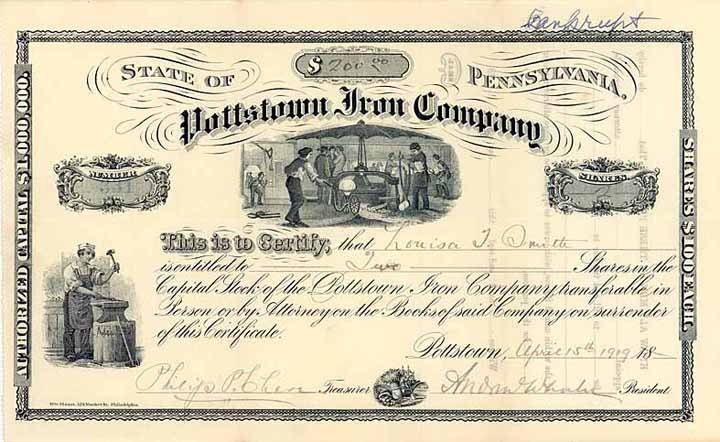 Bankrupt
$ 200.00
STATE OF PENNSYLVANIA.
Pottstown Iron Company
NUMBER
SHARES
AUTHORIZED CAPITAL $1,000,000.
SHARES $100 EACH.
This is to Certify, that Louisa T. Smith
is entitled to Two Shares in the
Capital Stock of the Pottstown Iron Company transferable in
Person or by Attorney on the Books of said Company on surrender
of this Certificate.
Pottstown, April 15th 1919 18
Treasurer President
Philadelphia.